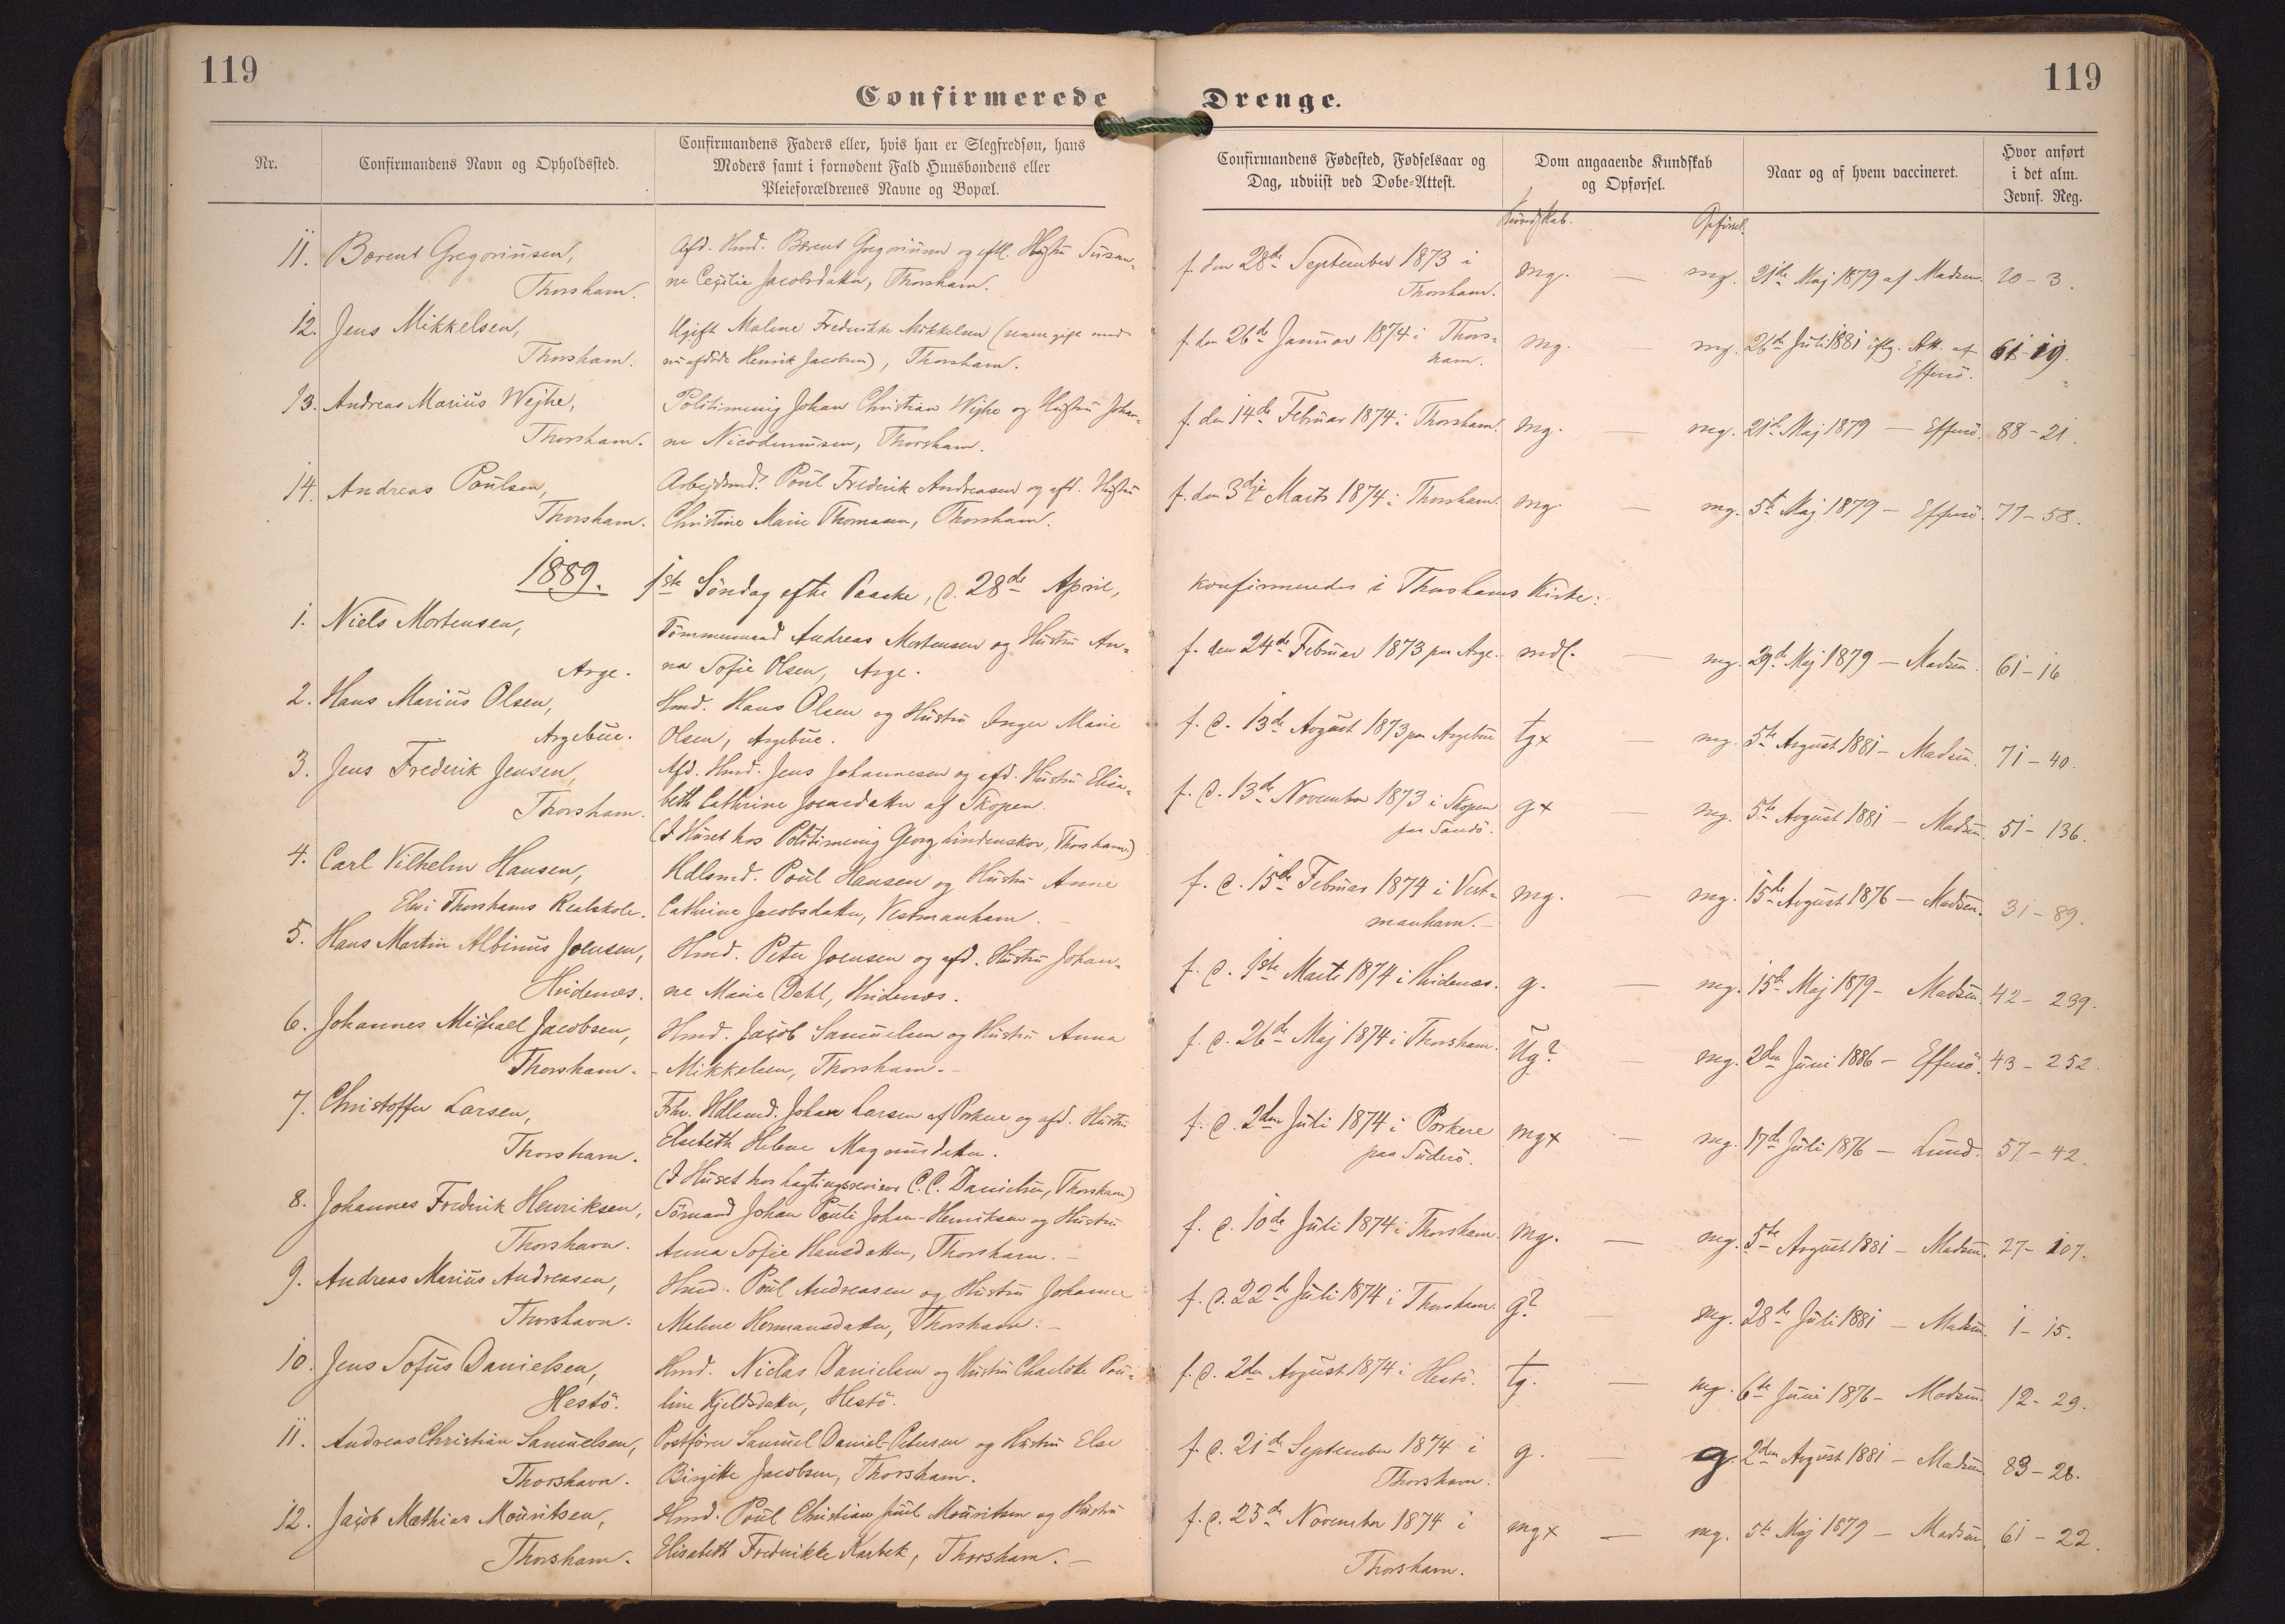 119
119
Confirmerede Drenge.
Nr.
Confirmandens Navn og Opholdssted.
Confirmandens Faders eller, hvis han er Slegfredsøn, hans
Moders samt i fornødent Fald Huusbondens eller
Pleieforældrenes Navne og Bopæl.
Confirmandens Fødested, Fødselsaar og
Dag, udviist ved Døbe-Attest.
Dom angaaende Kundskab
og Opførsel.
Naar og af hvem vaccineret.
Hvor anført
i det alm.
Jevnf. Reg.
Kundskab. Opførsel.
11. Barent Gregoriusen, Afd. Hmd. Barent Gregoriusen og eftl. Hustru Susan- f. den 28de September 1873 i mg. — mg. 21de Maj 1879 af Madsen. 10-3.
Thorshavn. ne Cecilie Jacobsdatter, Thorshavn. Thorshavn.
12. Jens Mikkelsen, Ugift Malene Frederikke Mikkelsen (senere gift med f. den 26de Januar 1874 i Thors- mg. — mg. 26de Juli 1881 iflg. Att. af 61-19.
Thorshavn. nu afdøde Henrik Jacobsen), Thorshavn. havn. Effersö.
13. Andreas Marius Wejhe, Politimenig Johan Christian Wejhe og Hustru Johan- f. den 14de Februar 1874 i Thorshavn. mg. — mg. 21de Maj 1879 — Effersö. 88-21.
Thorshavn. ne Nicodemusen, Thorshavn.
14. Andreas Poulsen, Arbejdsmd. Poul Frederik Andreasen og afd. Hustru f. den 3dje Marts 1874 i Thorshavn. mg. — mg. 5te Maj 1879 — Effersö. 77-58.
Thorshavn. Christine Marie Thomasen, Thorshavn.
1889. 1ste Søndag efter Paaske, d. 28de April, konfirmeredes i Thorshavns Kirke:
1. Niels Mortensen, Tømmermand Andreas Mortensen og Hustru An- f. den 24de Februar 1873 paa Arge. mdl. — mg. 29de Maj 1879 — Madsen. 61-16
Arge. na Sofie Olsen, Arge.
2. Hans Marius Olsen, Hmd. Hans Olsen og Hustru Inger Marie f. d. 13de August 1873 paa Argebue tg+ — mg. 5te August 1881 — Madsen. 71-40.
Argebue. Olsen, Argebue.
3. Jens Frederik Jensen, Afd. Hmd. Jens Johannesen og afd. Hustru Elisa- f. d. 13de November 1873 i Skopen g+ — mg. 5te August 1881 — Madsen. 51-136.
Thorshavn. beth Cathrine Joensdatter af Skopen. paa Sandö.
(I Huset hos Politimenig Georg Lindenskov, Thorshavn.)
4. Carl Vilhelm Hansen, Hdlsmd. Poul Hansen og Hustru Anne f. d. 15de Februar 1874 i Vest- mg. — mg. 15de August 1876 — Madsen. 31-89.
Elev i Thorshavns Realskole. Cathrine Jacobsdatter, Vestmanhavn. — manhavn. —
5. Hans Martin Albinus Joensen, Hmd. Peter Joensen og afd. Hustru Johan- f. d. 9de Marts 1874 i Hvidenæs. g. — mg. 15de Maj 1879 — Madsen. 42-239.
Hvidenæs. ne Marie Dahl, Hvidenæs.
6. Johannes Michael Jacobsen, Hmd. Jacob Samuelsen og Hustru Anna f. d. 26de Maj 1874 i Thorshavn. Ug? — mg. 2den Juni 1886 — Effersö. 43-252.
Thorshavn. Mikkelsen, Thorshavn. —
7. Christoffer Larsen, Fhv. Hdlsmd. Johan Larsen af Porkere og afd. Hustru f. d. 2den Juli 1874 i Porkere mg+ — mg. 17de Juli 1876 — Lund. 57-42.
Thorshavn. Elsebeth Helene Magnusdatter. paa Suderö.
(I Huset hos Lagtingsrevisor C. C. Danielsen, Thorshavn)
8. Johannes Frederik Henriksen, Sömand Johan Pauli Johan-Henriksen og Hustru f. d. 10de Juli 1874 i Thorshavn. mg. — mg. 5te August 1881 — Madsen. 27-107.
Thorshavn. Anna Sofie Hansdatter, Thorshavn. —
9. Andreas Marius Andreasen, Hmd. Poul Andreasen og Hustru Johanne f. d. 22de Juli 1874 i Thorshavn. g? — mg. 28de Juli 1881 — Madsen. 1-15.
Thorshavn. Malene Hermansdatter, Thorshavn. —
10. Jens Sofus Danielsen, Hmd. Niclas Danielsen og Hustru Charlotte Pou- f. d. 2den August 1874 i Hestö. tg. — mg. 6te Juni 1876 — Madsen. 12-29.
Hestö. line Kjeldsdatter, Hestö.
11. Andreas Christian Samuelsen, Postförer Samuel Daniel Petersen og Hustru Else f. d. 21de September 1874 i g. — g. 2den August 1881 — Madsen. 83-28.
Thorshavn. Birgitte Jacobsen, Thorshavn. Thorshavn.
12. Jacob Mathias Mouritsen, Hmd. Poul Christian Juul Mouritsen og Hustru f. d. 25de November 1874 i mg+ — mg. 5te Maj 1879 — Madsen 61-22.
Thorshavn. Elisabeth Fredrikke Karbek, Thorshavn. — Thorshavn.